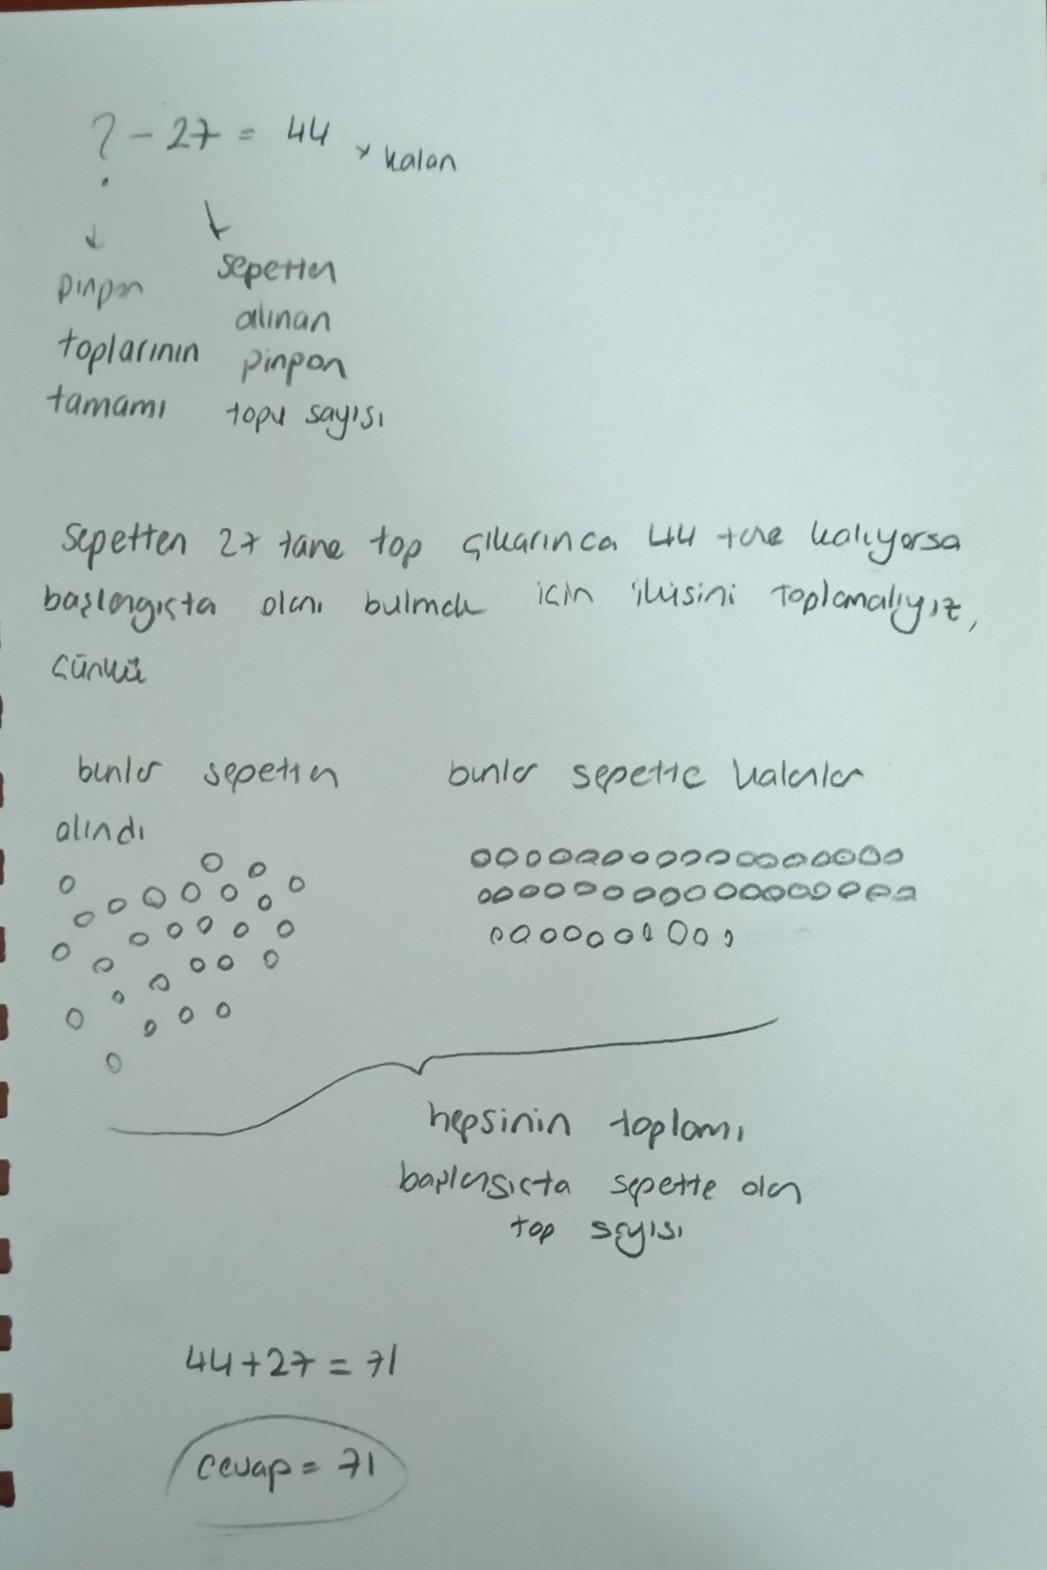 ? - 27 = 44 → kalan
pinpon
toplarının
tamamı
sepetten
alınan
pinpon
topu sayısı
Sepetten 27 tane top çıkarınca 44 tane kalıyorsa
başlangıçta olanı bulmak için ikisini toplamalıyız,
çünkü
bunlar sepetten
alındı
bunlar sepette kalanlar
hepsinin toplamı
başlangıçta sepette olan
top sayısı
44+27=71
cevap = 71